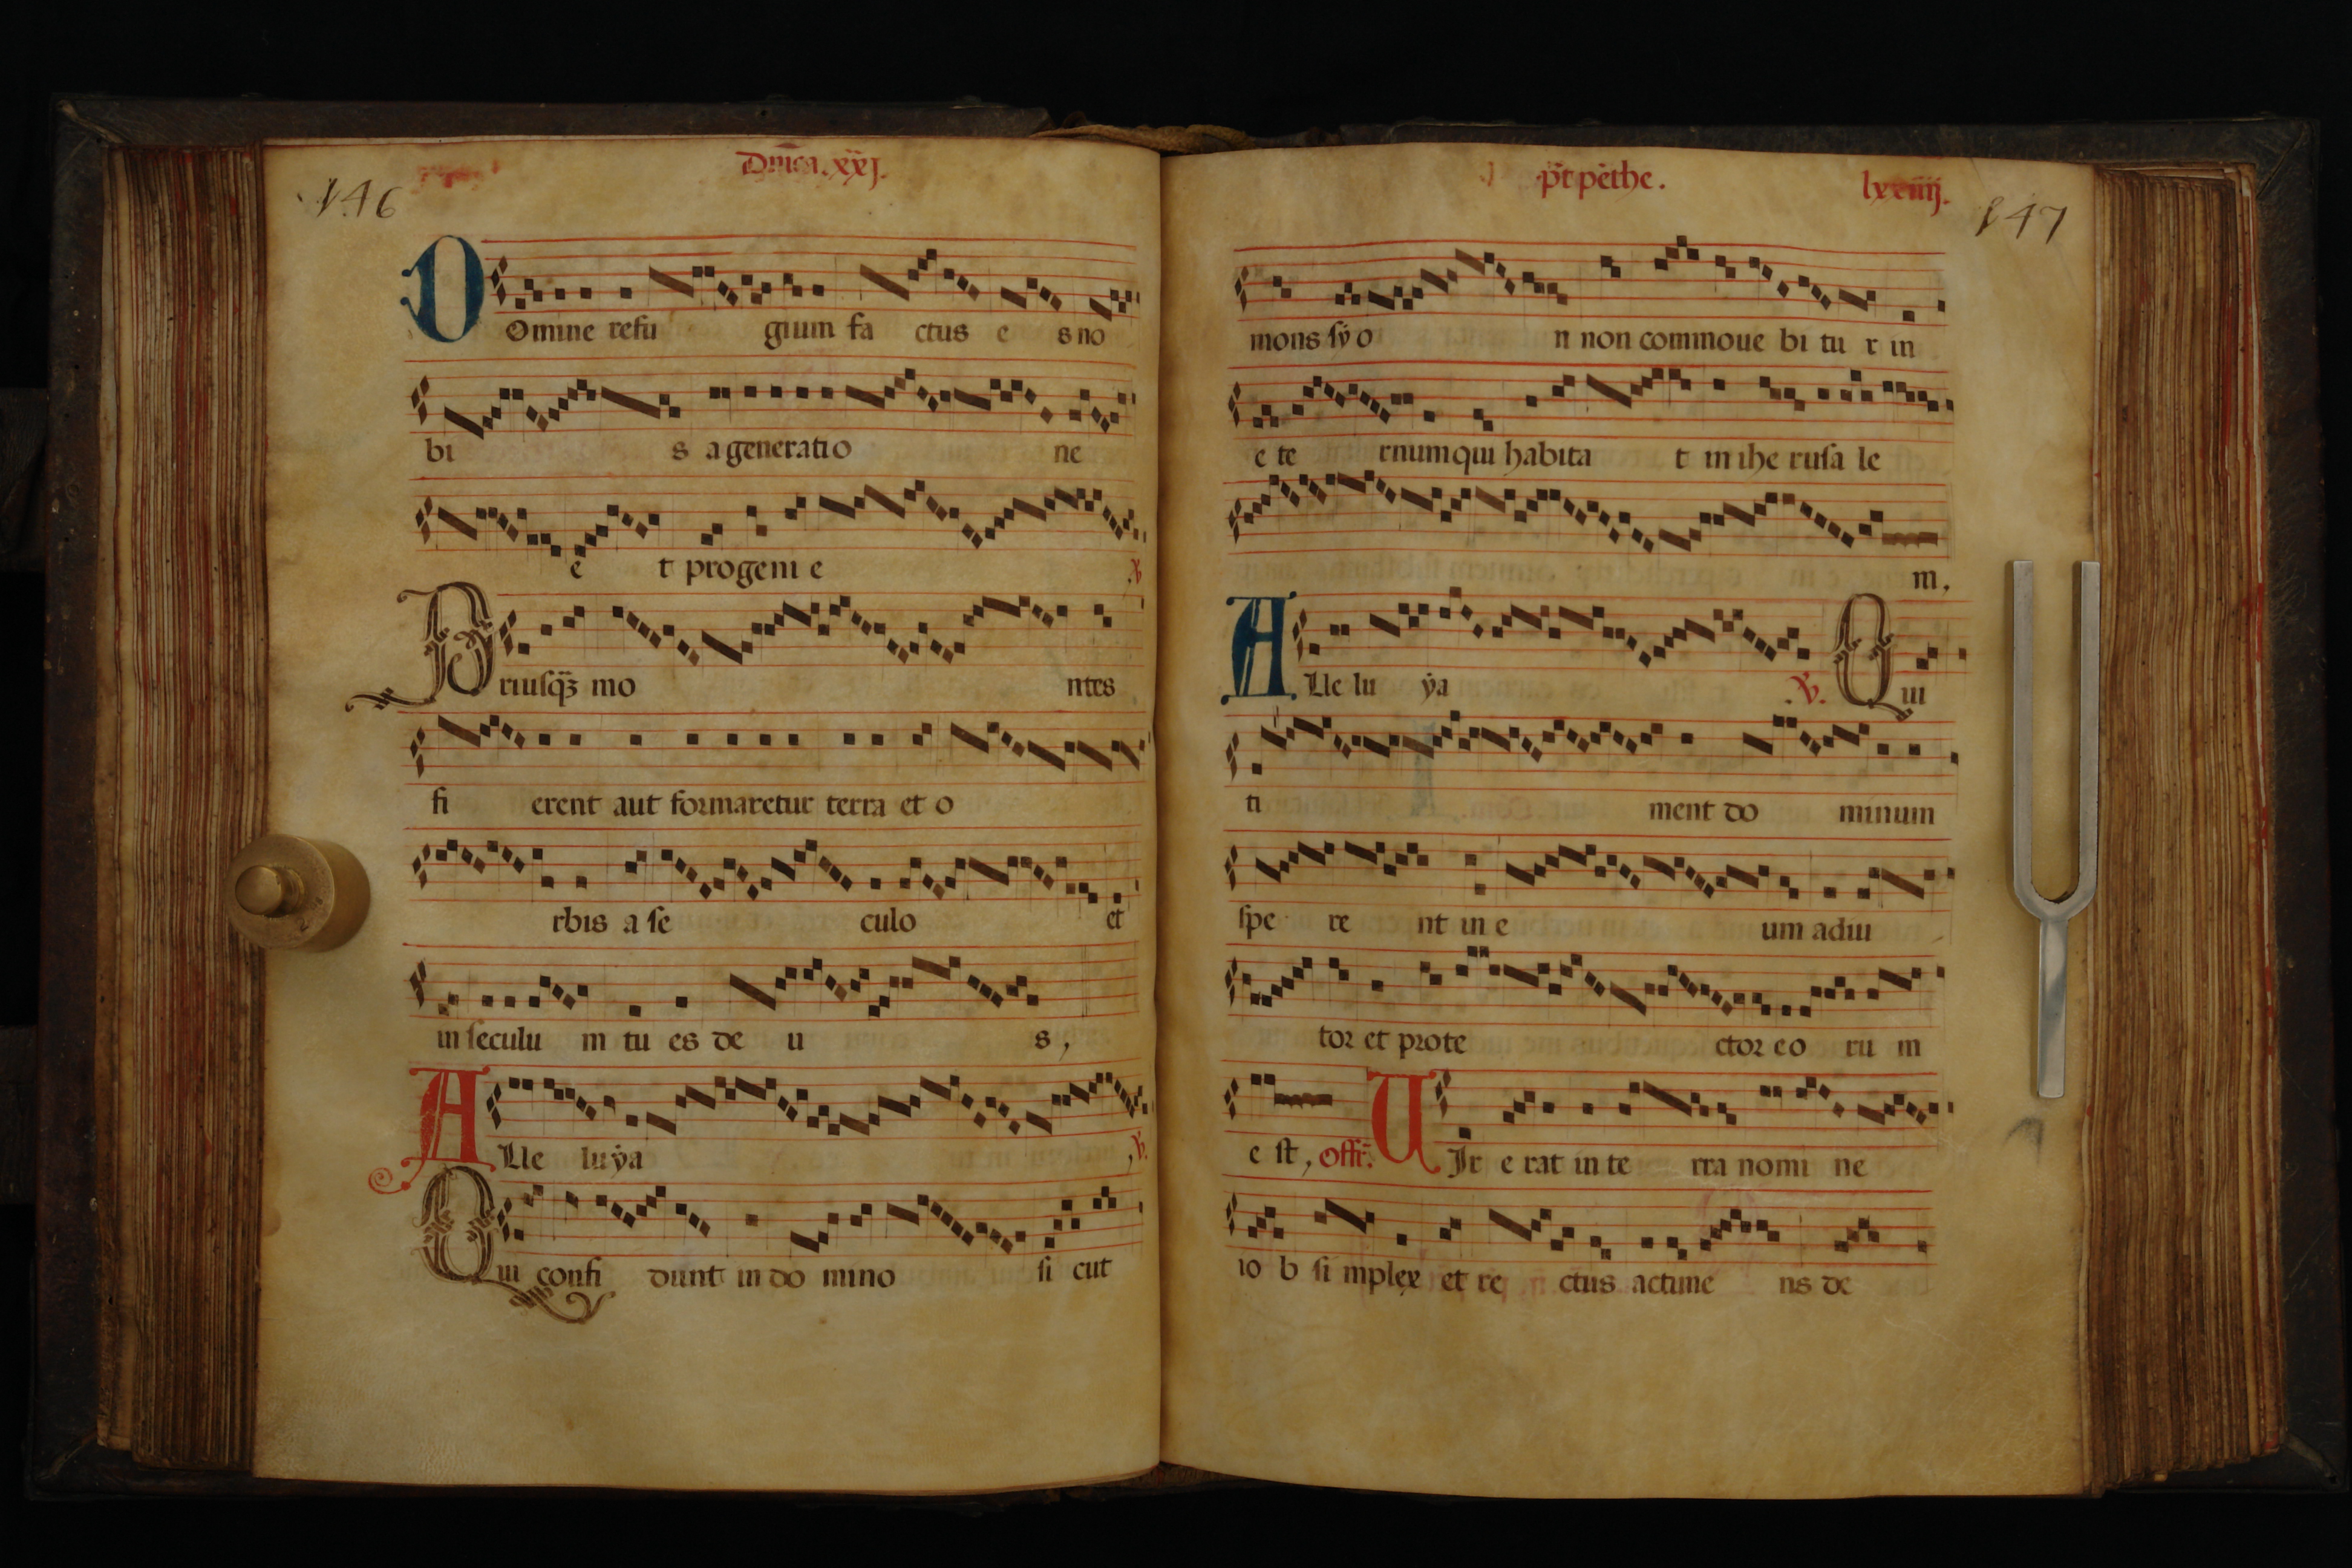 146
Dn̄ica.xxj.
Domine refu gium fa ctus e s no
bi s a generatio ne
e t progeni e ꝟ
Priusqꝫ mo ntes
fi erent aut formaretur terra et o
rbis a se culo et
in seculu m tu es de u s,
Alle luẏa ,ꝟ.
Qui confi dunt in do mino si cut
p̄t pēthe. lxxiiij.
147
mons sẏ o n non commoue bi tu r in
e te rnum qui habita t in ihe rusa le
m.
Alle lu ẏa .ꝟ. Qui
ti ment do minum
spe re nt in e um adiu
tor et prote ctor eo ru m
e st, Offr̄. UIr e rat in te rra nomi ne
io b si mplex et re ctus ac time ns de
2